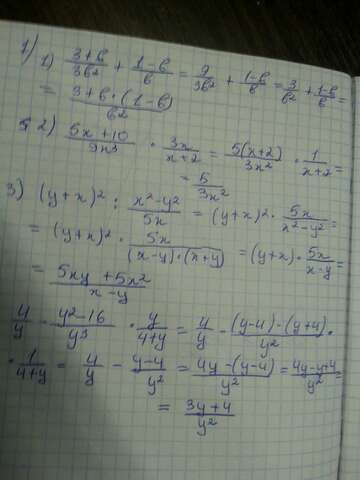 1)
1) \frac{3+b}{3b^2} + \frac{1-b}{b} = \frac{9}{3b^2} + \frac{1-b}{b} = \frac{3}{b^2} + \frac{1-b}{b} =
= \frac{3+b \cdot (1-b)}{b^2}
2) \frac{5x+10}{9x^3} \cdot \frac{3x}{x+2} = \frac{5(x+2)}{3x^2} \cdot \frac{1}{x+2} =
= \frac{5}{3x^2}
3) (y+x)^2 : \frac{x^2-y^2}{5x} = (y+x)^2 \cdot \frac{5x}{x^2-y^2} =
= (y+x)^2 \cdot \frac{5x}{(x-y) \cdot (x+y)} = (y+x) \cdot \frac{5x}{x-y} =
= \frac{5xy+5x^2}{x-y}
\frac{4}{y} - \frac{y^2-16}{y^3} \cdot \frac{y}{4+y} = \frac{4}{y} - \frac{(y-4)-(y+4)}{y^2} \cdot
\cdot \frac{1}{4+y} = \frac{4}{y} - \frac{y-4}{y^2} = \frac{4y-(y-4)}{y^2} = \frac{4y-y+4}{y^2} =
= \frac{3y+4}{y^2}